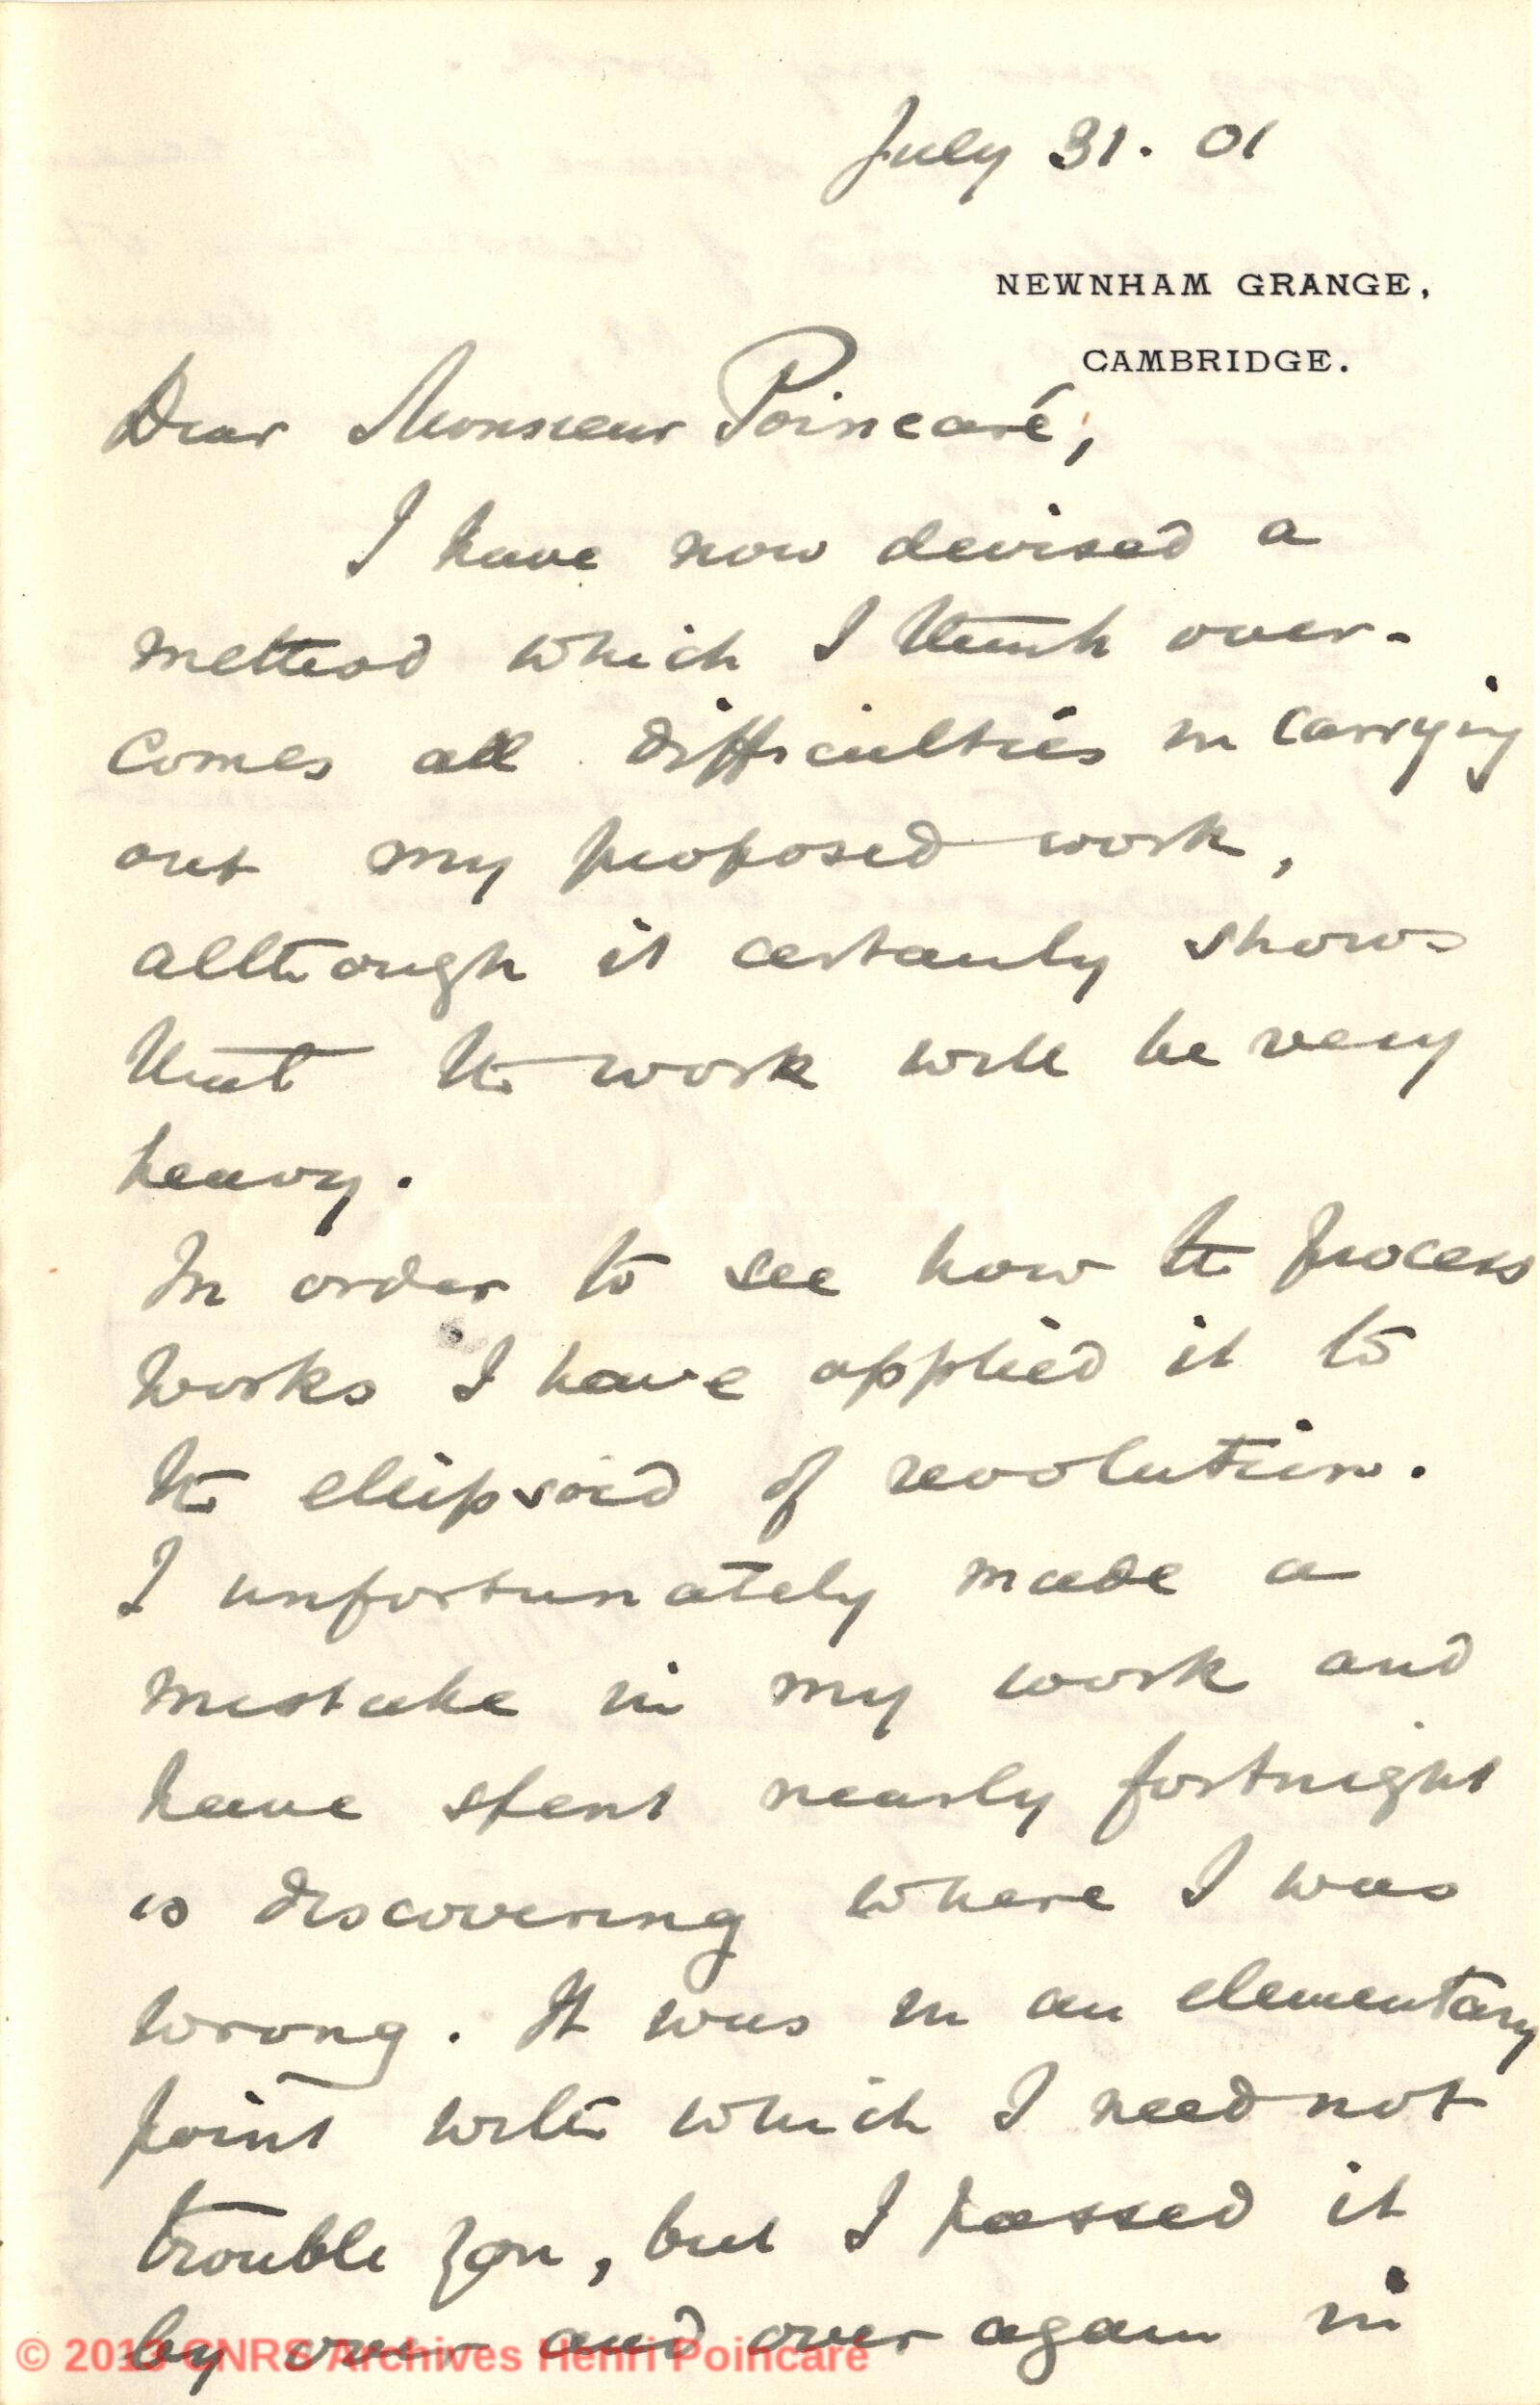 July 31. 01
NEWNHAM GRANGE,
CAMBRIDGE.
Dear Monsieur Poincaré,
I have now devised a
method which I think over-
comes all difficulties in carrying
out my proposed work,
although it certainly shows
that the work will be very
heavy.
In order to see how the process
works I have applied it to
the ellipsoid of revolution.
I unfortunately made a
mistake in my work and
have spent nearly fortnight
is discovering where I was
wrong. It was in an elementary
point with which I need not
trouble you, but I passed it
by over and over again in
© 2013 CNRS Archives Henri Poincaré